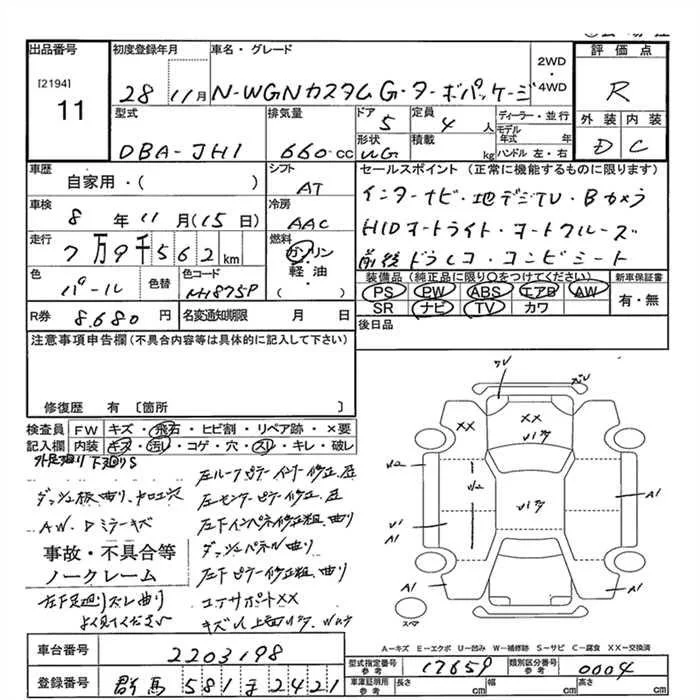 出品番号
[2194]
11
初度登録年月
28年 11月
車名・グレード
N-WGNカスタムG・ターボパッケージ
2WD・4WD
評価点
R
外装 内装
D C
型式
DBA-JH1
排気量
660cc
ドア
5
定員
4人
形状
WG
積載
kg
ディーラー・並行
モデル年式 年
ハンドル 左・右
車歴
自家用・( )
シフト
AT
セールスポイント (正常に機能するものに限ります)
インターナビ・地デジTV・Bカメラ
HIDオートライト・オートクルーズ
前後ドラレコ・コンビシート
車検
8年11月(15日)
冷房
AAC
走行
7万9千562km
燃料
ガソリン
軽油
・( )
色
パール
色替
色コード
NH875P
装備品 (純正品に限り○をつけてください)
PS PW ABS エアB AW
SR ナビ TV カワ
新車保証書
有・無
R券
8,680円
名変通知期限 月 日
後日品
注意事項申告欄(不具合内容等は具体的に記入して下さい)
修復歴 有 〔箇所 〕
検査員記入欄
FW キズ・飛石・ヒビ割・リペア跡・×要
内装 キズ・汚レ・コゲ・穴・スリ・キレ・破レ
外足廻り 下廻りS
AW、Dミラーキズ
事故・不具合等
ノークレーム
左下足廻りズレ曲り
よく見てください
左センターピラー修正、歪
左下インパネ修正粗、曲り
ダッシュパネル曲り
左下ピラー修正粗、曲り
コアサポートXX
XX
XX
U2
U1
A1
A1
A1
A1
スペア
A-キズ E-エクボ U-凹み W-補修跡 S-サビ C-腐食 XX-交換済
車台番号
2203198
登録番号
群馬 581 ま 2421
型式指定番号 参考
17659
類別区分番号 参考
0004
車庫証明用 参考
長さ cm 幅 cm 高さ cm